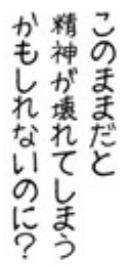 このままだと
精神が壊れてしまう
かもしれないのに?